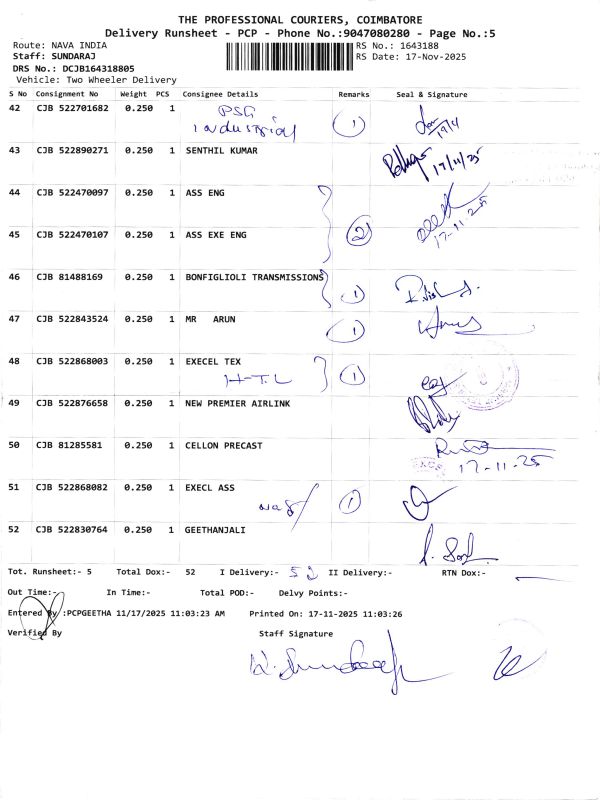 THE PROFESSIONAL COURIERS, COIMBATORE
Delivery Runsheet - PCP - Phone No.:9047080280 - Page No.:5
Route: NAVA INDIA
Staff: SUNDARAJ
DRS No.: DCJB164318805
Vehicle: Two Wheeler Delivery
RS No.: 1643188
RS Date: 17-Nov-2025
S No Consignment No Weight PCS Consignee Details Remarks Seal & Signature
42 CJB 522701682 0.250 1 PSG
Industrial 1
43 CJB 522890271 0.250 1 SENTHIL KUMAR 17/11/25
44 CJB 522470097 0.250 1 ASS ENG
45 CJB 522470107 0.250 1 ASS EXE ENG 2 17-11-25
46 CJB 81488169 0.250 1 BONFIGLIOLI TRANSMISSIONS 1
47 CJB 522843524 0.250 1 MR ARUN 1
48 CJB 522868003 0.250 1 EXECEL TEX
H-T.L 1
49 CJB 522876658 0.250 1 NEW PREMIER AIRLINK
50 CJB 81285581 0.250 1 CELLON PRECAST 17-11-25
51 CJB 522868082 0.250 1 EXECL ASS 1
52 CJB 522830764 0.250 1 GEETHANJALI
Tot. Runsheet:- 5 Total Dox:- 52 I Delivery:- 52 II Delivery:- RTN Dox:-
Out Time:- In Time:- Total POD:- Delvy Points:-
Entered By :PCPGEETHA 11/17/2025 11:03:23 AM Printed On: 17-11-2025 11:03:26
Verified By Staff Signature